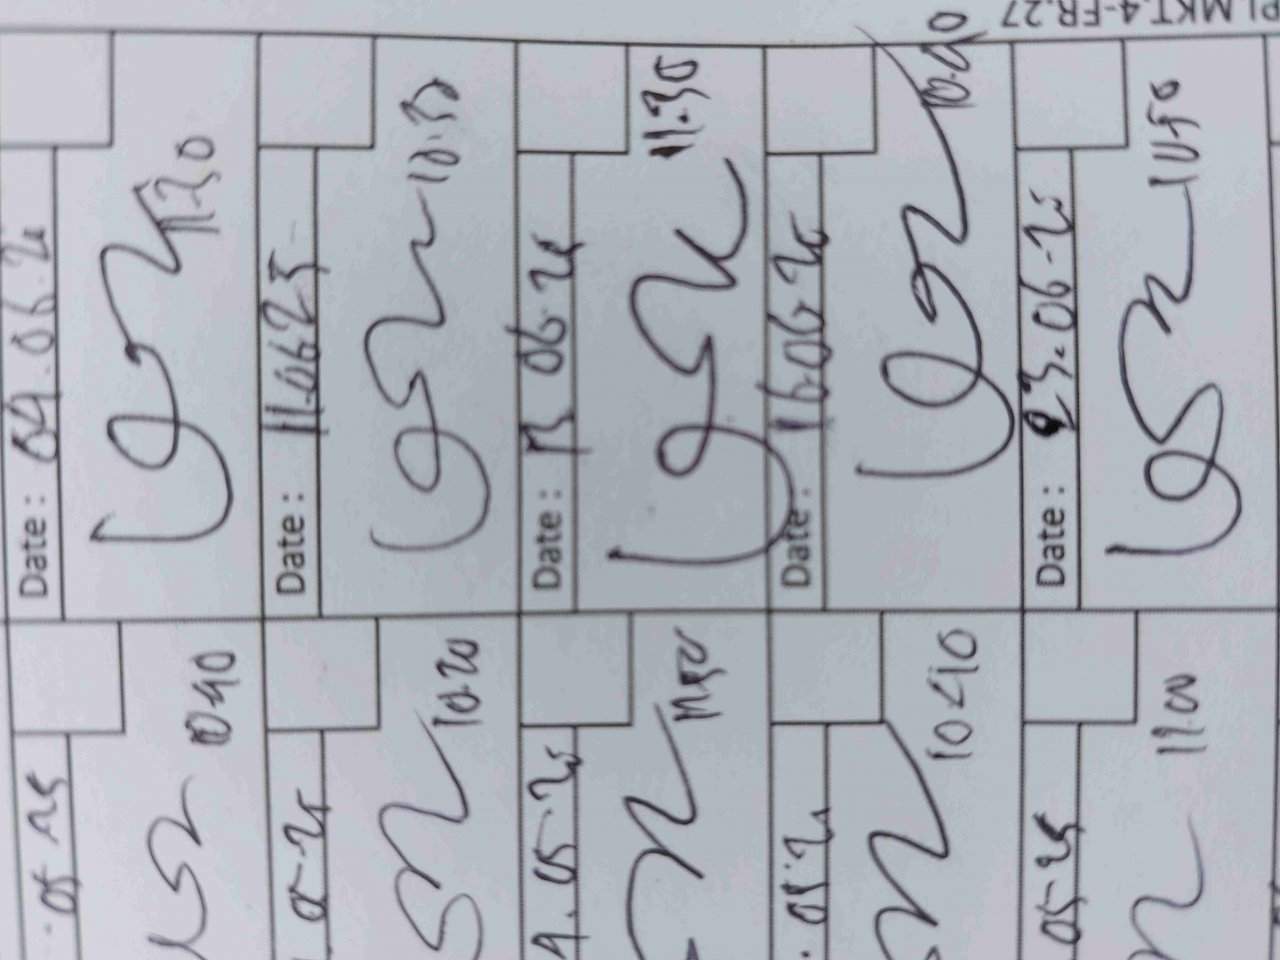 PI.MKT.4-FR.27
Date : 04.06.25
11.30
Date : 11.06.25
10.30
Date : 13 06.25
11.30
Date : 16.06.25
10.40
Date : 23.06.25
10.50
.05.25
10.40
.05.25
10.20
9.05.25
11.50
.05.25
10.40
05.25
11.00